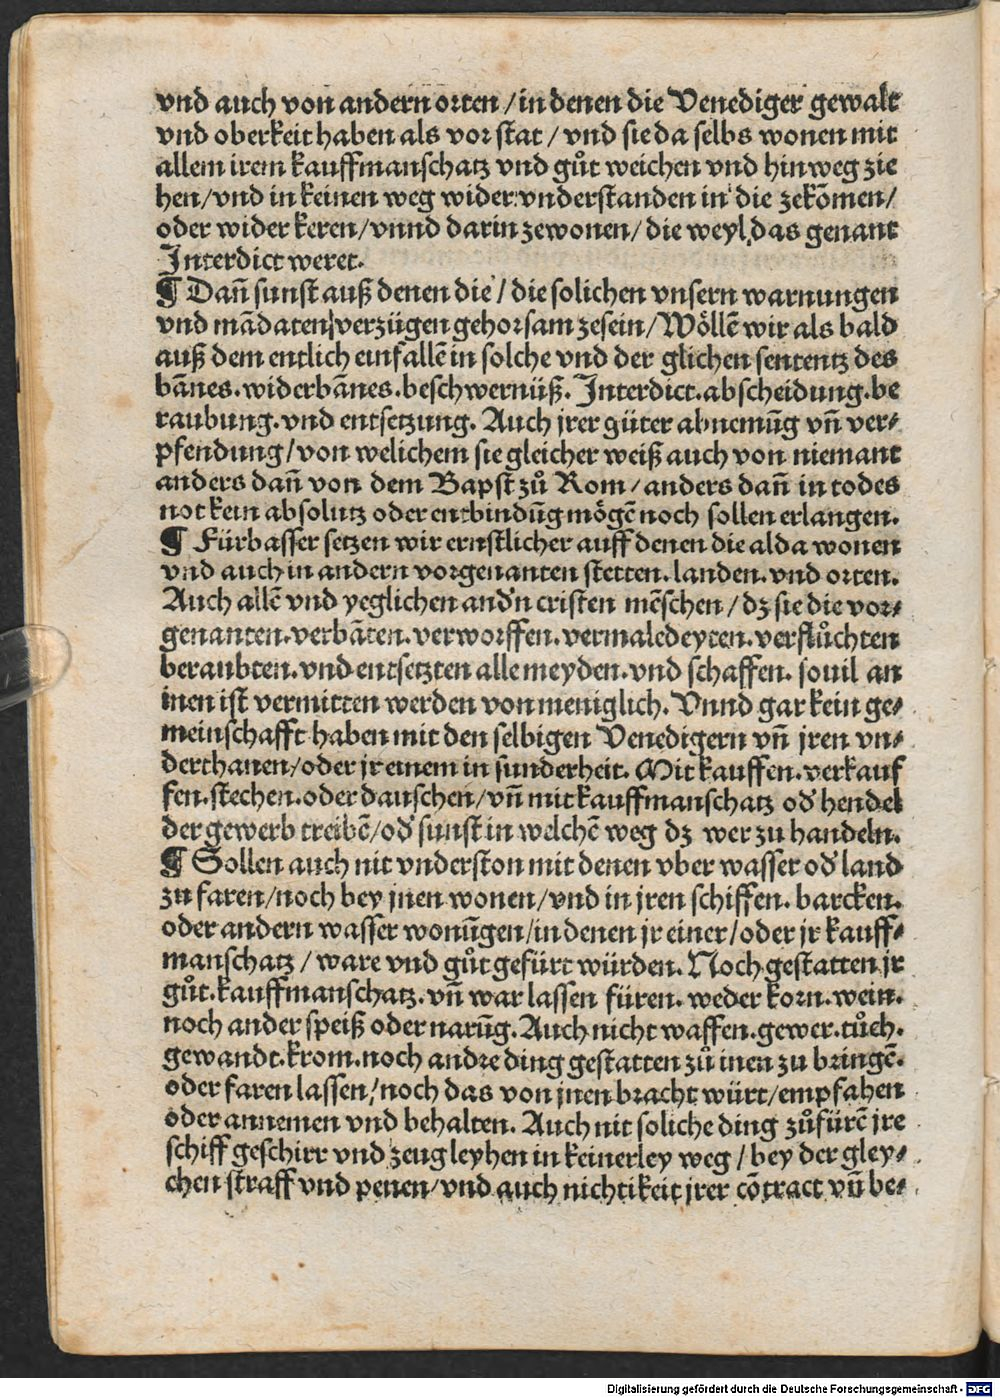 vnd auch von andern orten / in denen die Venediger gewalt
vnd oberkeit haben als vor stat / vnd sie da selbs wonen mit
allem irem kauffmanschatz vnd gůt weichen vnd hinweg zie
hen / vnd in keinen weg wider vnderstanden in die zekõmen /
oder wider keren / vnnd darin zewonen / die weyl das genant
Interdict weret.
¶ Dañ sunst auß denen die / die solichen vnsern warnungen
vnd mãdaten verzügen gehorsam zesein / Wöllẽ wir als bald
auß dem entlich einfallẽ in solche vnd der glichen sententz des
bãnes. widerbãnes. beschwernüß. Interdict. abscheidung. be
raubung. vnd entsetzung. Auch jrer güter abnemũg vñ ver⸗
pfendung / von welichem sie gleicher weiß auch von niemant
anders dañ von dem Bapst zů Rom / anders dañ in todes
not kein absolutz oder entbindũg mögẽ noch sollen erlangen.
¶ Fürbasser setzen wir ernstlicher auff denen die alda wonen
vnd auch in andern vorgenanten stetten. landen. vnd orten.
Auch allẽ vnd yeglichen and'n cristen mẽschen / dz sie die vor⸗
genanten. verbãten. verworffen. vermaledeyten. verflůchten
beraubten. vnd entsetzten alle meyden. vnd schaffen. souil an
inen ist vermitten werden von meniglich. Vnnd gar kein ge⸗
meinschafft haben mit den selbigen Venedigern vñ jren vn⸗
derthanen / oder jr einem in sunderheit. Mit kauffen. verkauf
fen. stechen. oder dauschen / vñ mit kauffmanschatz od' hendel
der gewerb treibẽ / od' sunst in welchẽ weg dz wer zu handeln.
¶ Sollen auch nit vnderston mit denen vber wasser od' land
zu faren / noch bey jnen wonen / vnd in jren schiffen. barcken.
oder andern wasser wonũgen / in denen jr einer / oder jr kauff⸗
manschatz / ware vnd gůt gefürt würden. Noch gestatten jr
gůt. kauffmanschatz. vñ war lassen füren. weder korn. wein.
noch ander speiß oder narũg. Auch nicht waffen. gewer. tůch.
gewandt. krom. noch andre ding gestatten zů inen zu bringẽ.
oder faren lassen / noch das von jnen bracht würt / empfahen
oder annemen vnd behalten. Auch nit soliche ding zůfürẽ jre
schiff geschirr vnd zeug leyhen in keinerley weg / bey der gley⸗
chen straff vnd penen / vnd auch nichtikeit jrer cõtract vñ be⸗
Digitalisierung gefördert durch die Deutsche Forschungsgemeinschaft - DFG